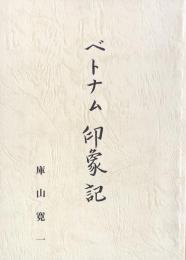 ベトナム印象記
庫山寛一